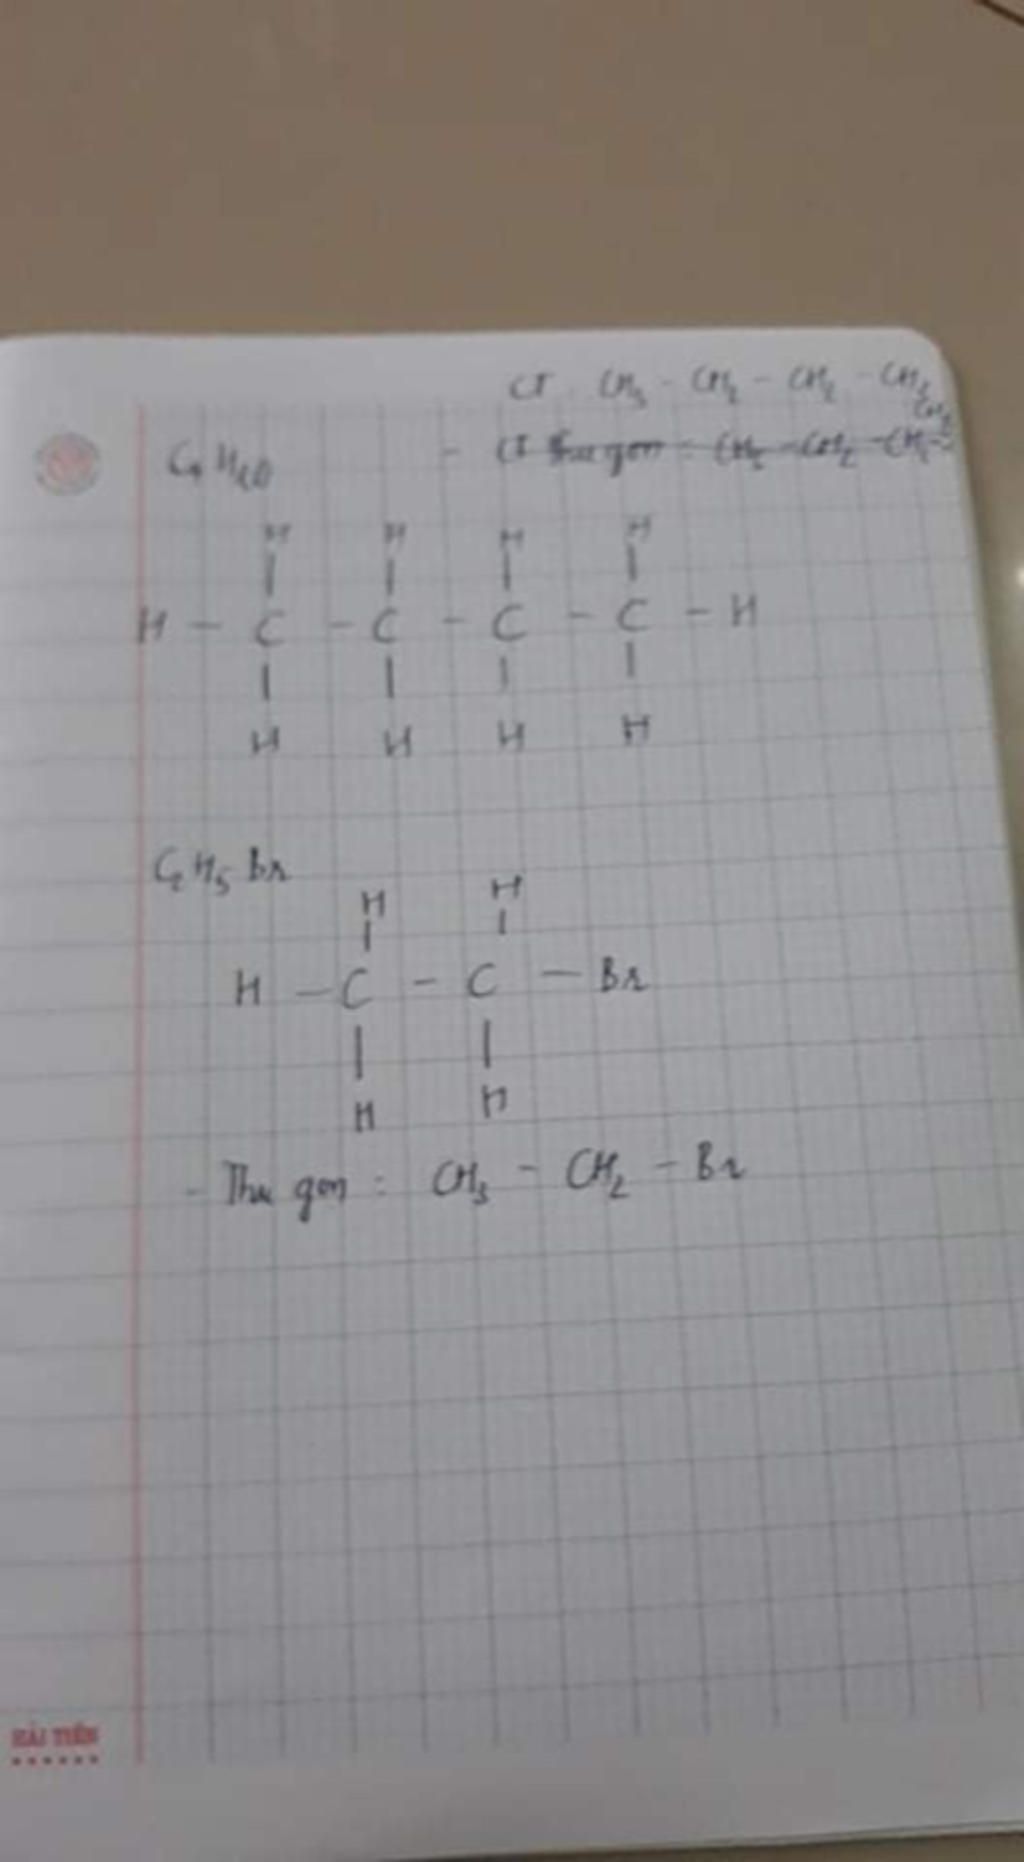 CT : CH3 - CH2 - CH2 - CH3
CH3
C4H10 - CT thu gọn : CH3 - CH2 - CH2 -
H H H H
| | | |
H - C - C - C - C - H
| | | |
H H H H
C2H5Br
H H
| |
H - C - C - Br
| |
H H
- Thu gọn : CH3 - CH2 - Br
HẢI TIẾN